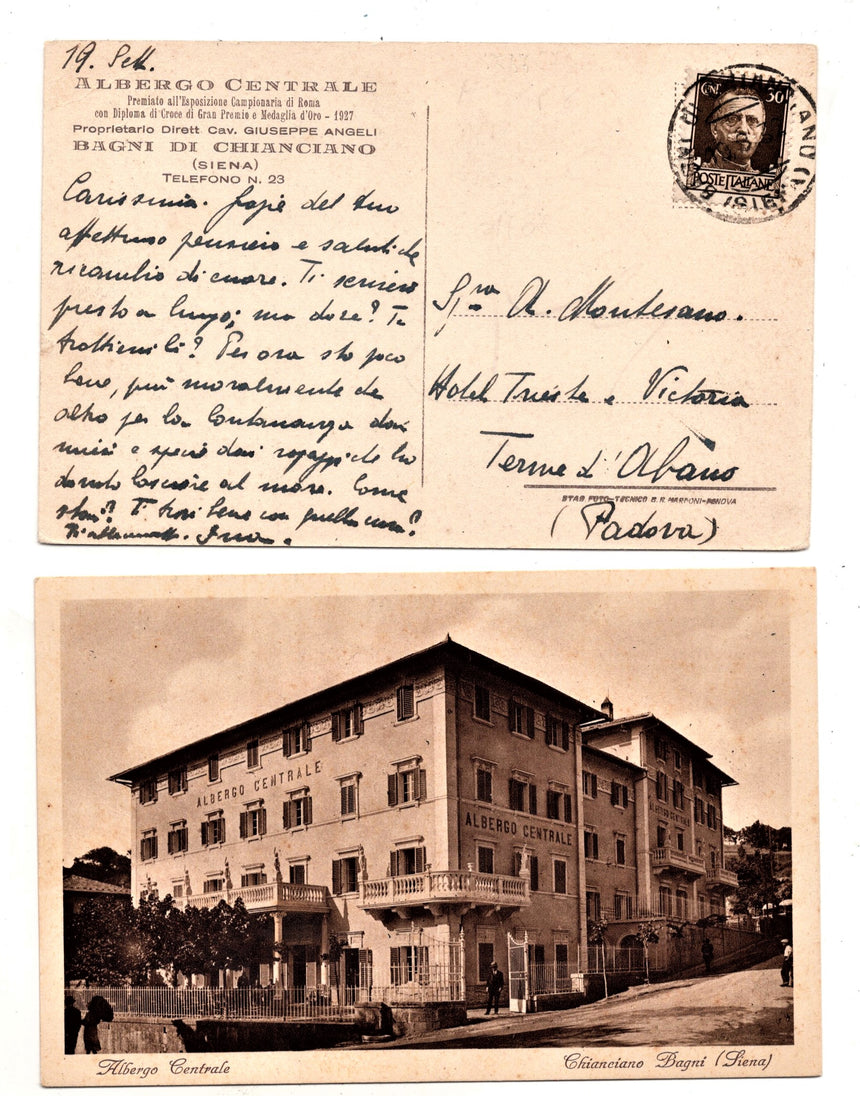 19. Sett.
ALBERGO CENTRALE
Premiato all'Esposizione Campionaria di Roma
con Diploma di Croce di Gran Premio e Medaglia d'Oro - 1927
Proprietario Dirett. Cav. GIUSEPPE ANGELI
BAGNI DI CHIANCIANO
(SIENA)
TELEFONO N. 23
Carissima. Grazie del tuo
affettuoso pensiero e saluti che
ricambio di cuore. Ti scriverò
presto a lungo; ma dove? Ti
trattieni lì? Per ora sto poco
bene, più moralmente che
altro per la lontananza dai
miei e specie dai ragazzi che ho
dovuto lasciare al mare. Come
stai? Ti trovi bene con quella cura?
CENT. 30
POSTE ITALIANE
Sig.ra A. Montesano.
Hotel Trieste e Victoria
Terme d'Abano
STAB. FOTO-TECNICO G. R. MARCONI-GENOVA
(Padova)
ALBERGO CENTRALE
ALBERGO CENTRALE
ALBERGO CENTRALE
Albergo Centrale
Chianciano Bagni (Siena)